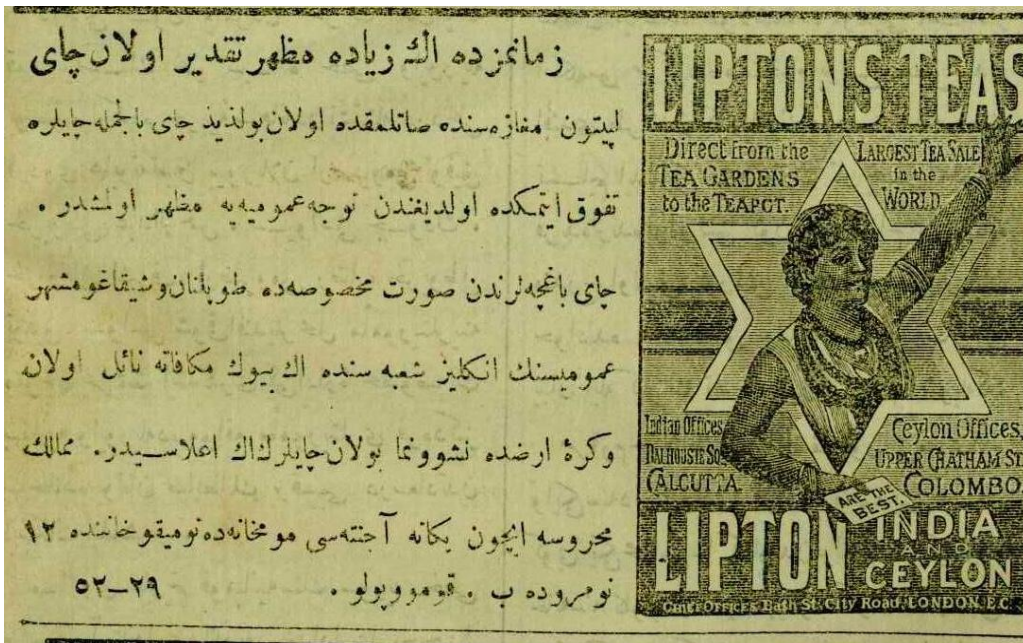 زمانمزده اڭ زياده مظهر تقدير اولان چاى
ليپتون مغازه‌سنده صاتلمقده اولان بولذيذ چاى بالجمله چايلره
تفوق ايتمكده اولديغندن توجه عموميه‌يه مظهر اولمشدر .
چاى باغچه‌لرندن صورت مخصوصه‌ده طوپلنان وشيقاغو مشهر
عموميسنك انكليز شعبه سنده اڭ بيوك مكافاته نائل اولان
وكرۀ ارضده نشوونما بولان چايلرك اڭ اعلاسيدر. ممالك
محروسه ايچون يكانه آجنته‌سى مومخانه‌ده نوميقو خاننده ١٢
نومروده ب . قومووپولو . ٢٩–٥٢
LIPTONS TEAS
Direct from the
TEA GARDENS
to the TEAPOT.
LARGEST TEA SALE
in the
WORLD.
Indian Offices,
DALHOUSIE SQ.
CALCUTTA.
Ceylon Offices,
UPPER CHATHAM ST
COLOMBO
ARE THE
BEST.
LIPTON INDIA
AND
CEYLON
Chief Offices Bath St. City Road, LONDON. E.C.